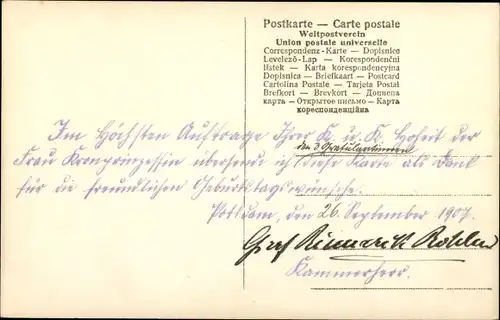 Postkarte — Carte postale
Weltpostverein
Union postale universelle
Correspondenz-Karte — Dopisnice
Levelező-Lap — Korespondenční
lístek — Karta korespondencyjna
Dopisnica — Briefkaart — Postcard
Cartolina Postale — Tarjeta Postal
Brefkort — Brevkort — Дописна
карта — Открытое письмо — Карта
кореспонденційна
Im Höchsten Auftrage Ihrer K. u. K. Hoheit der
den 3 Gratulantinnen
Frau Kronprinzessin übersende ich diese Karte als Dank
für die freundlichen Geburtstagswünsche.
Potsdam, den 26. September 1907.
Graf Bismarck Bohlen
Kammerherr.